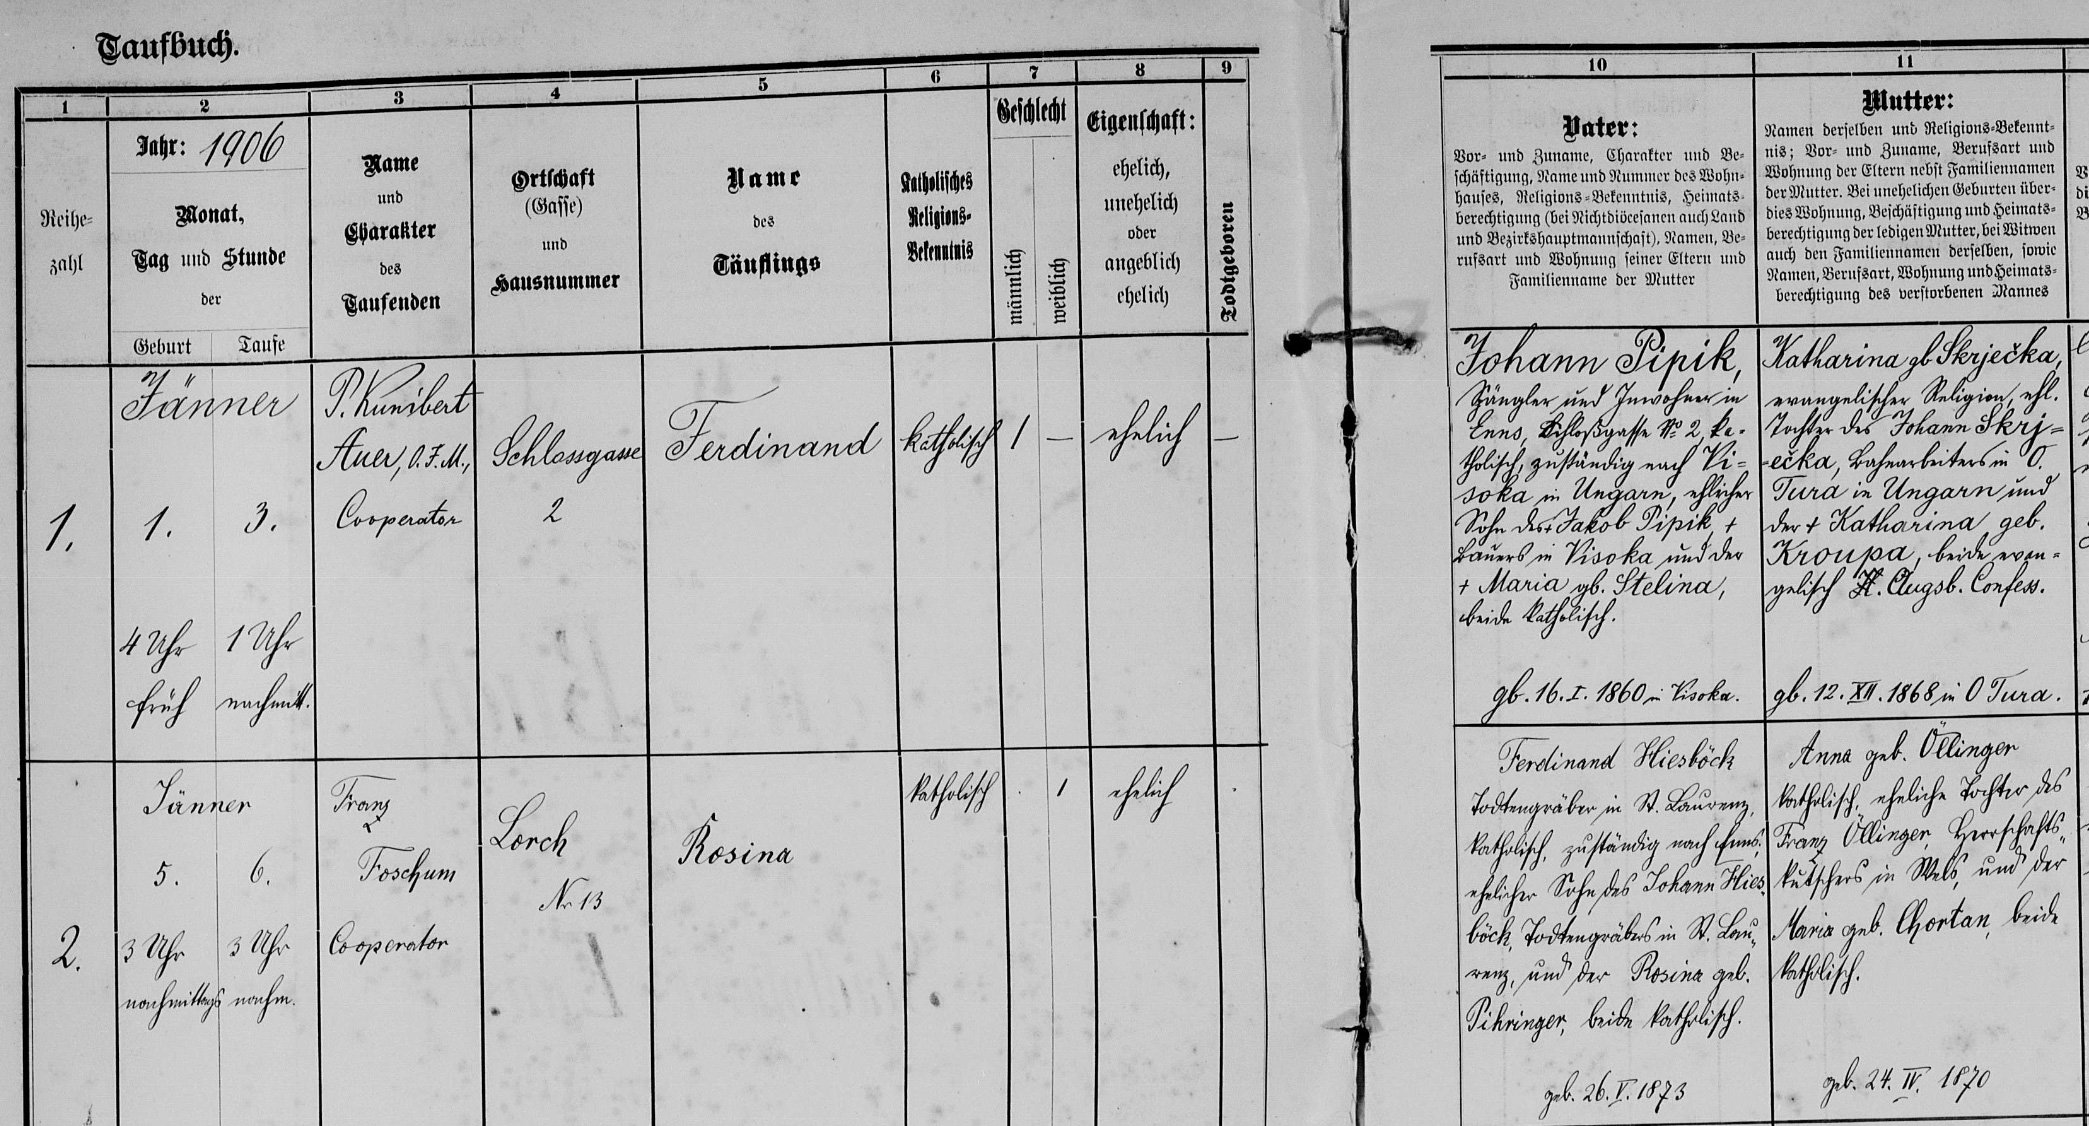 Taufbuch.
1
2
3
4
5
6
7
8
9
10
11
Reihe-
zahl
Jahr: 1906
Monat,
Tag und Stunde
der
Geburt
Taufe
Name
und
Charakter
des
Taufenden
Ortschaft
(Gasse)
und
Hausnummer
Name
des
Täuflings
Katholisches
Religions-
Bekenntnis
Geschlecht
männlich
weiblich
Eigenschaft:
ehelich,
unehelich
oder
angeblich
ehelich
Todtgeboren
Vater:
Vor- und Zuname, Charakter und Be-
schäftigung, Name und Nummer des Wohn-
hauses, Religions-Bekenntnis, Heimats-
berechtigung (bei Nichtdiöcesanen auch Land
und Bezirkshauptmannschaft), Namen, Be-
rufsart und Wohnung seiner Eltern und
Familienname der Mutter
Mutter:
Namen derselben und Religions-Bekennt-
nis; Vor- und Zuname, Berufsart und
Wohnung der Eltern nebst Familiennamen
der Mutter. Bei unehelichen Geburten über-
dies Wohnung, Beschäftigung und Heimats-
berechtigung der ledigen Mutter, bei Witwen
auch den Familiennamen derselben, sowie
Namen, Berufsart, Wohnung und Heimats-
berechtigung des verstorbenen Mannes
1.
Jänner
1.
3.
4 Uhr
früh
1 Uhr
nachmitt.
P. Kunibert
Auer, O.F.M.,
Cooperator
Schlossgasse
2
Ferdinand
katholisch
1
—
ehelich
—
Johann Pipik,
und Inwohner in
Enns, Schloßgasse No 2, ka-
tholisch, zuständig nach Vi-
soka in Ungarn, ehlicher
Sohn des + Jakob Pipik, +
Bauers in Visoka und der
+ Maria gb. Stelina,
beide katholisch.
gb. 16. I. 1860 in Visoka.
Katharina gb Skrječka,
evangelischer Religion, ehl.
Tochter des Johann Skrj=
=ečka, Bahnarbeiters in O.
Tura in Ungarn und
der + Katharina geb.
Kroupa, beide evan=
gelisch Augsb. Confess.
gb. 12. XII. 1868 in O Tura.
2.
Jänner
5.
6.
3 Uhr
nachmittags
3 Uhr
nachm.
Franz
Foschum
Cooperator
Lorch
Nr 13
Rosina
katholisch
.
1
ehelich
.
Ferdinand Hiesböck
Todtengräber in St. Laurenz,
katholisch, zuständig nach Enns,
ehelicher Sohn des Johann Hies-
böck, Todtengräbers in St. Lau„
renz, und der Rosina geb.
Pihringer, beide katholisch.
geb. 26. V. 1873
Anna geb. Öllinger
katholisch, eheliche Tochter des
Franz Öllinger, Herrschafts„
kutschers in Wels, und der
Maria geb. Chortan, beide
katholisch.
geb. 24. IV. 1870